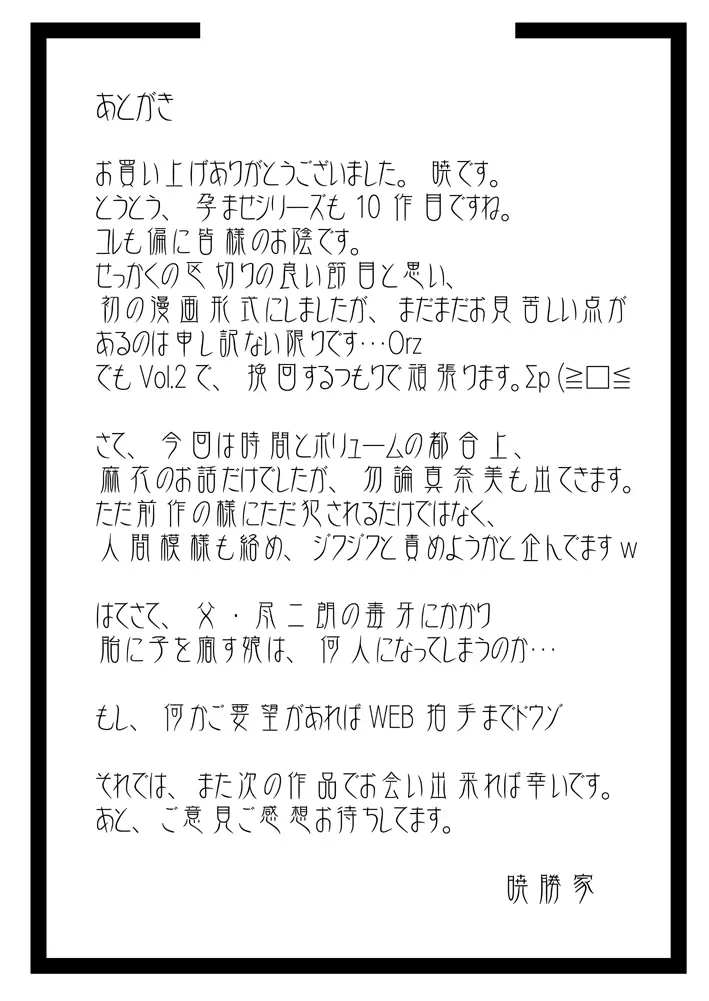 あとがき
お買い上げありがとうございました。 暁です。
とうとう、 孕ませシリーズも 10 作目ですね。
コレも偏に皆様のお陰です。
せっかくの区切りの良い節目と思い、
初の漫画形式にしましたが、 まだまだお見苦しい点が
あるのは申し訳ない限りです…Orz
でも Vol.2 で、 挽回するつもりで頑張ります。Σp (≧□≦
さて、 今回は時間とボリュームの都合上、
麻衣のお話だけでしたが、 勿論真奈美も出てきます。
ただ前作の様にただ犯されるだけではなく、
人間模様も絡め、 ジワジワと責めようかと企んでます w
はてさて、 父・尽二朗の毒牙にかかり
胎に子を宿す娘は、 何人になってしまうのか…
もし、 何かご要望があれば WEB 拍手までドウゾ
それでは、 また次の作品でお会い出来れば幸いです。
あと、 ご意見ご感想お待ちしてます。
暁勝家